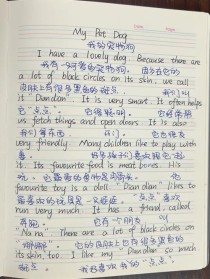 My Pet Dog
我的宠物狗
I have a lovely dog. Because there are
我有一只可爱的宠物狗。因为它的
a lot of black circles on its skin, we call
皮肤上有很多黑色的斑点，我们叫
it "Dian dian". It is very smart. It often helps
它"点点"。它很聪明。它经常帮
us fetch things and open doors. It is also
我们拿东西 开门。它也很友
very friendly. Many children like to play with
善。很多孩子们喜欢跟它玩
it. Its favourite food is meat bones. His
favourite toy is a doll. "Dian dian" likes to
最喜欢的玩具是一只娃娃。点点喜欢
run very much. It has a friend, called
跑步。它有一个朋友，叫
"Na na". There are a lot of black circles on
"娜娜"。它的皮肤上也有很多黑色的
its skin, too. I like my "Dian dian" so much.
我也喜欢我的"点点"。